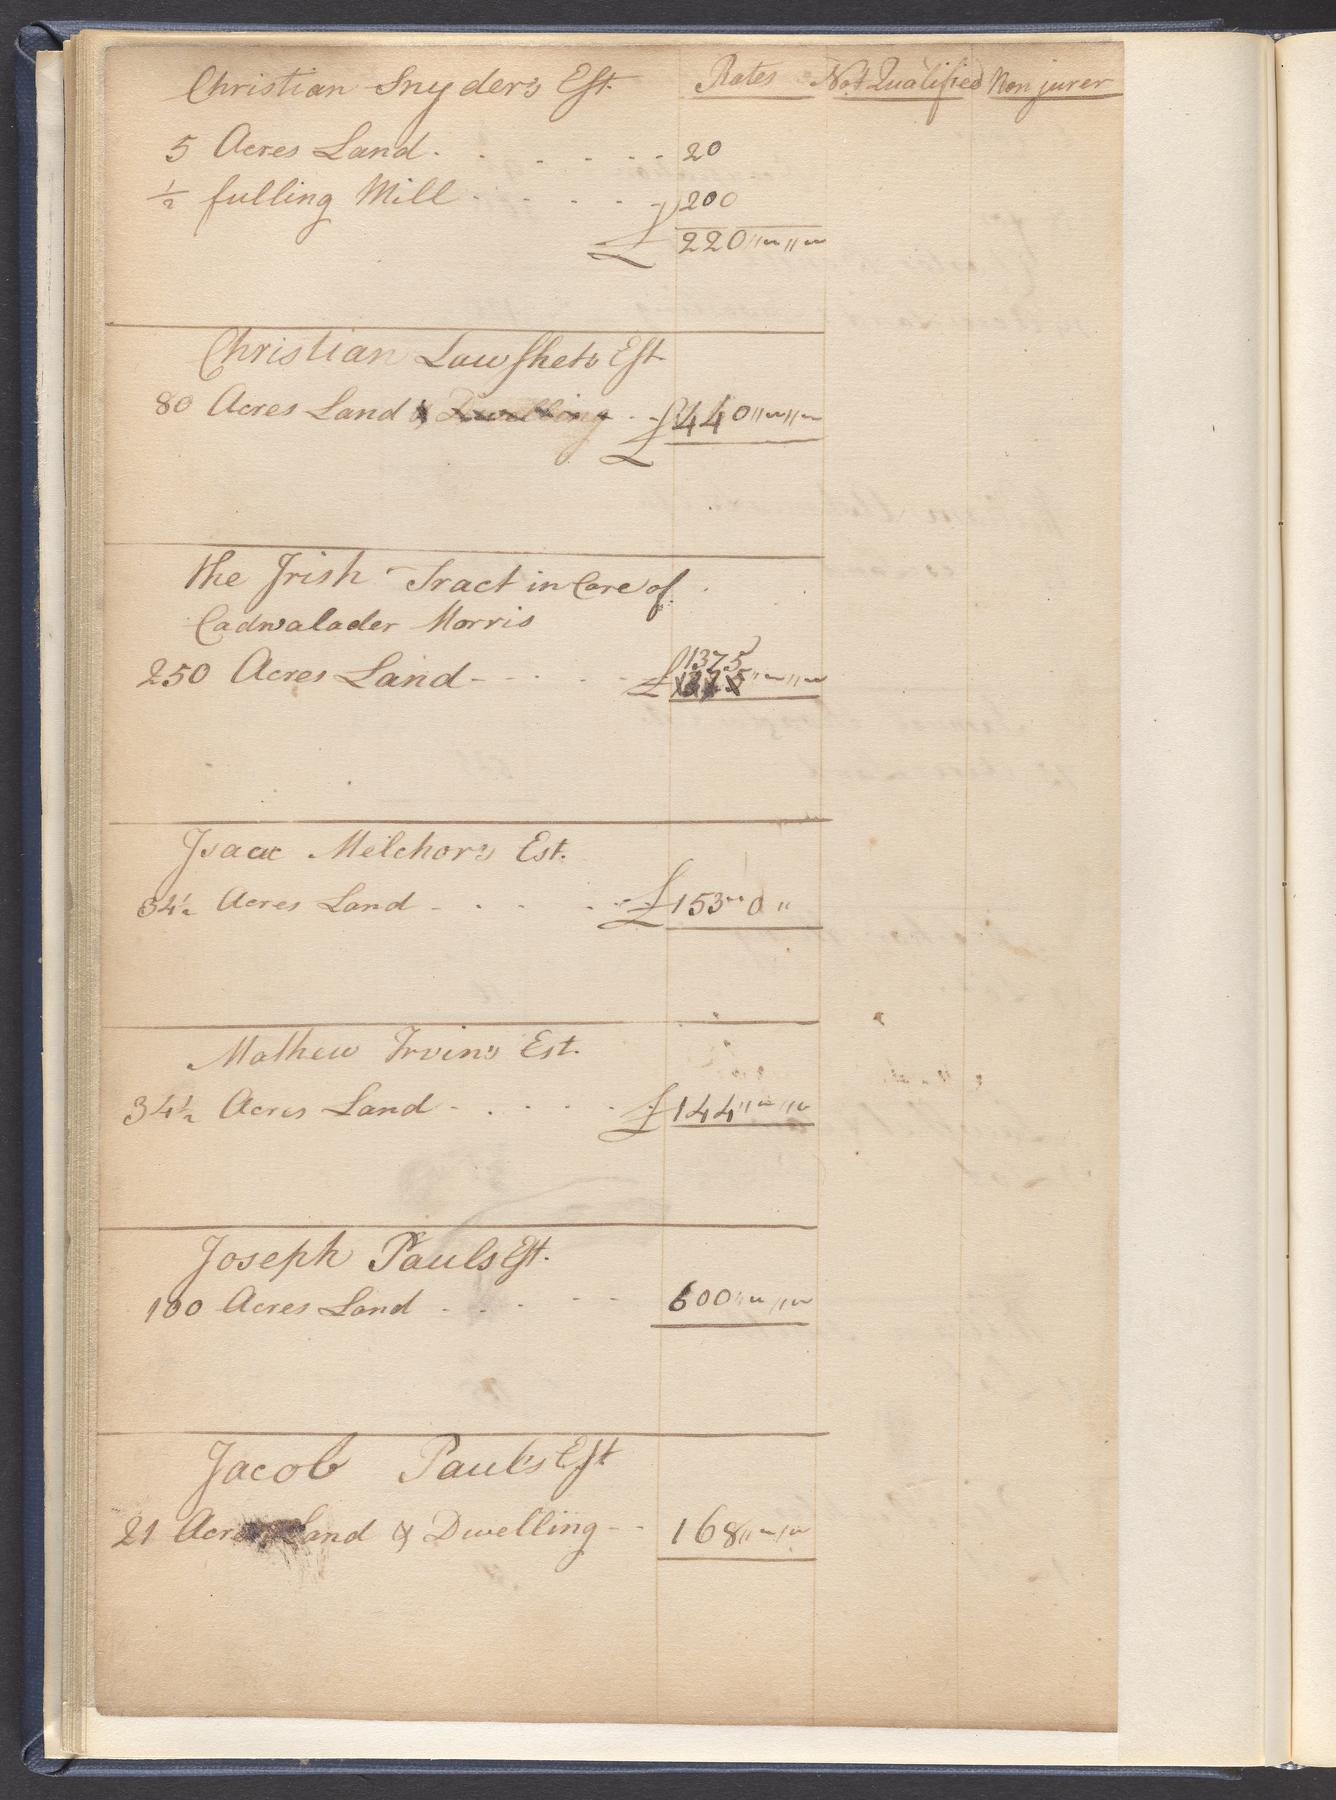 Christian Snyders Est. Rates Not Qualified Non jurer
5 Acres Land 20
½ fulling Mill 200
£ 220 " " "
Christian Lawshets Est
80 Acres Land & Dwelling £ 440 " " "
the Irish Tract in Care of
Cadwalader Morris
1375
250 Acres Land £ 1375 " " "
Isaac Melchors Est.
34½ Acres Land £ 153 " 0 "
Mathew Irvins Est.
34½ Acres Land £ 144 " " "
Joseph Pauls Est.
100 Acres Land 600 " " "
Jacob Pauls Est
21 Acres Land & Dwelling 168 " " "